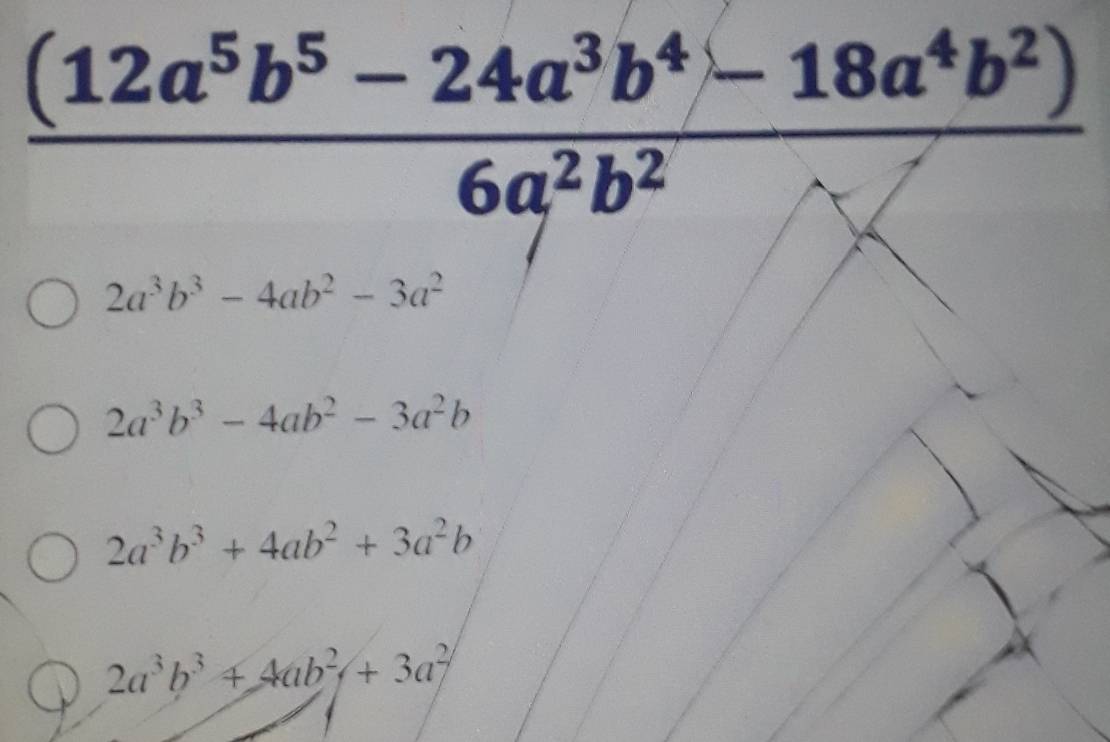 (12a⁵b⁵ − 24a³b⁴ − 18a⁴b²)
6a²b²
2a³b³ − 4ab² − 3a²
2a³b³ − 4ab² − 3a²b
2a³b³ + 4ab² + 3a²b
2a³b³ + 4ab² + 3a²